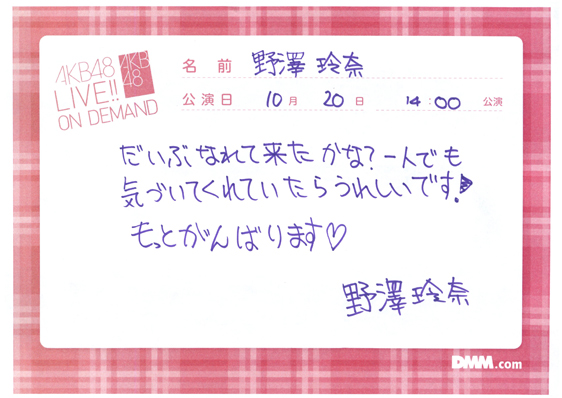 AKB48
LIVE!!
ON DEMAND
AKB
48
名前 野澤 玲奈
公演日 10月 20日 14:00 公演
だいぶなれて来たかな?一人でも
気づいてくれていたらうれしいです!
もっとがんばります♡
野澤 玲奈
DMM.com